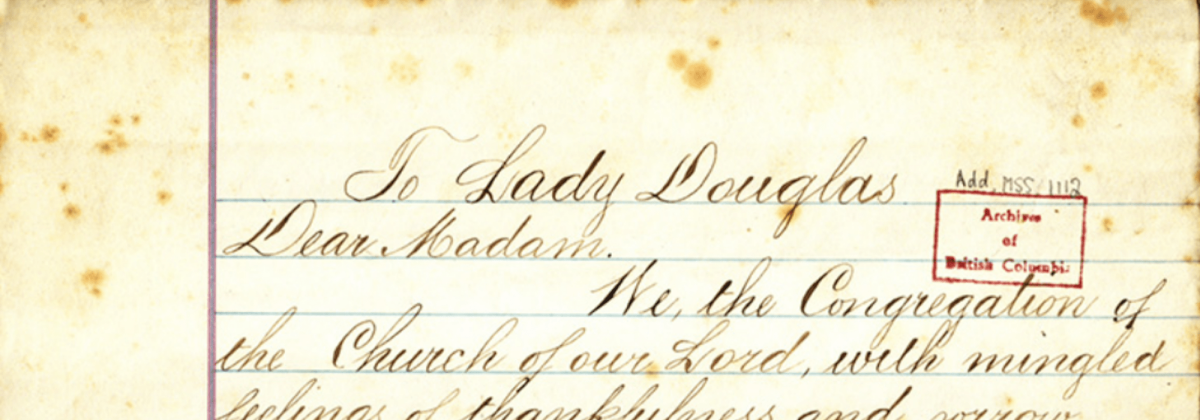 To Lady Douglas
Add. MSS 1112
Archives
of
British Columbia
Dear Madam.
We, the Congregation of
the Church of our Lord, with mingled
feelings of thankfulness and sorrow